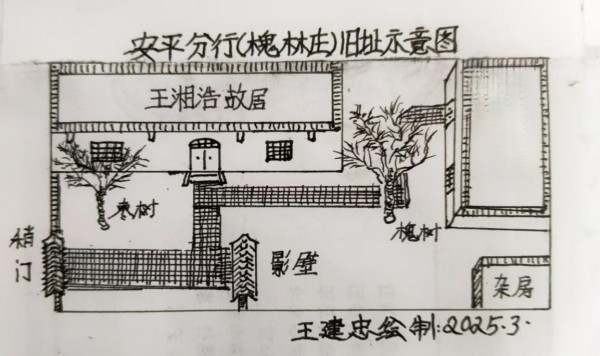 安平分行(槐林庄)旧址示意图
王湘浩故居
枣树
槐树
梢门
影壁
杂房
王建忠绘制:2025.3.